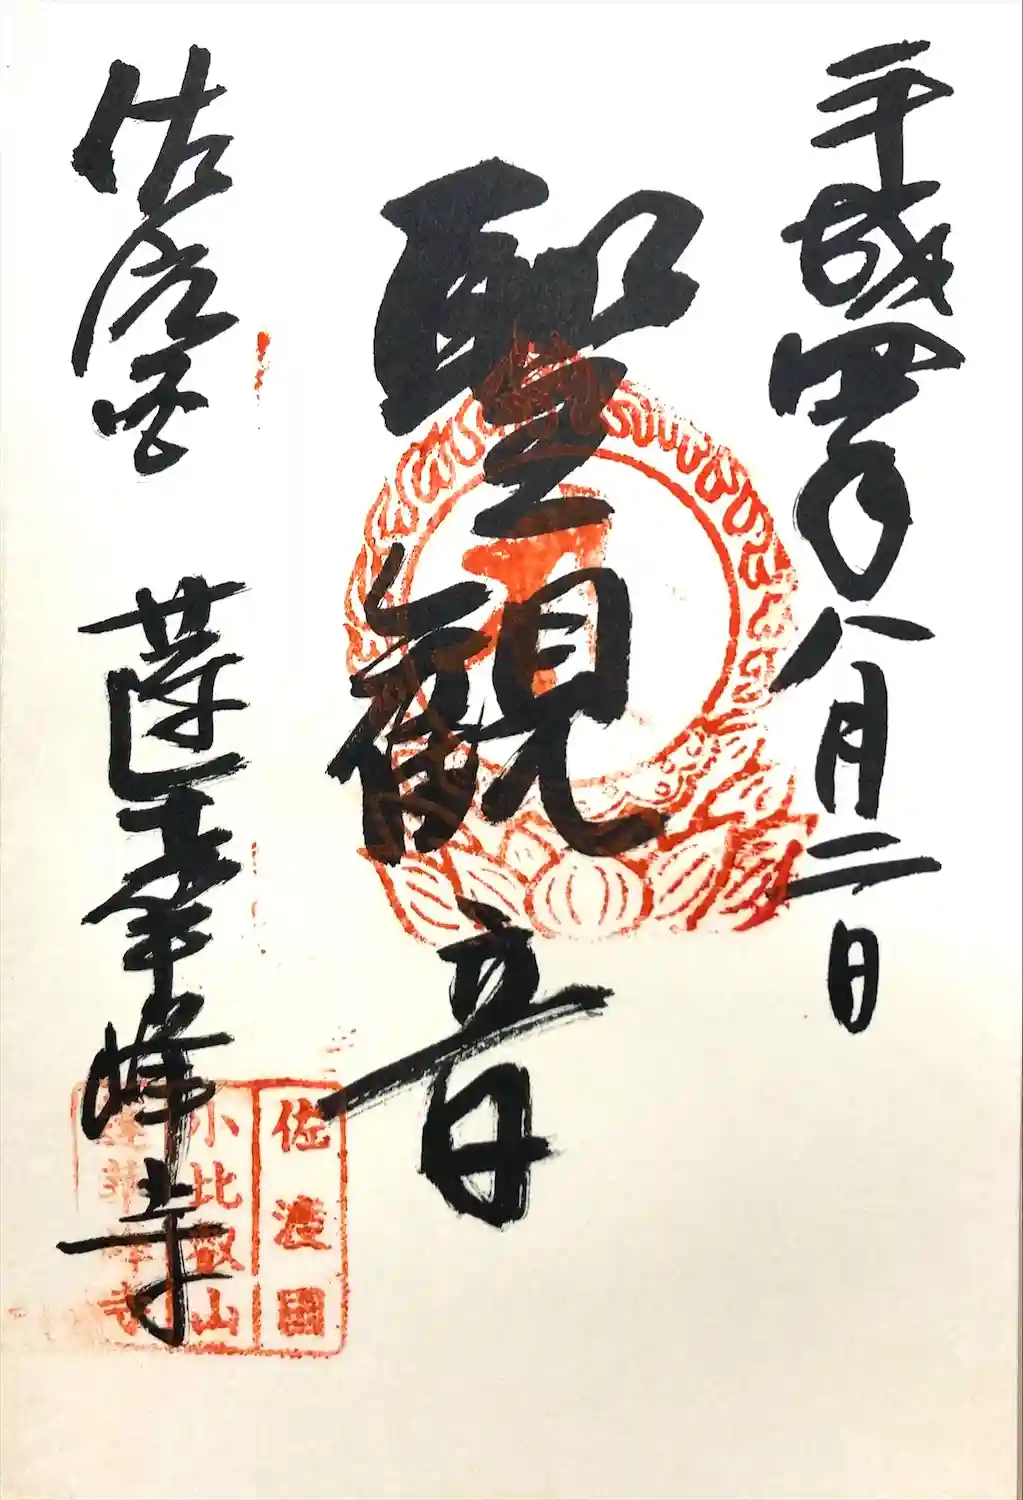 平成四年八月二日
聖観音
佐渡国 蓮華峰寺
佐渡國
小比叡山
蓮華峰寺